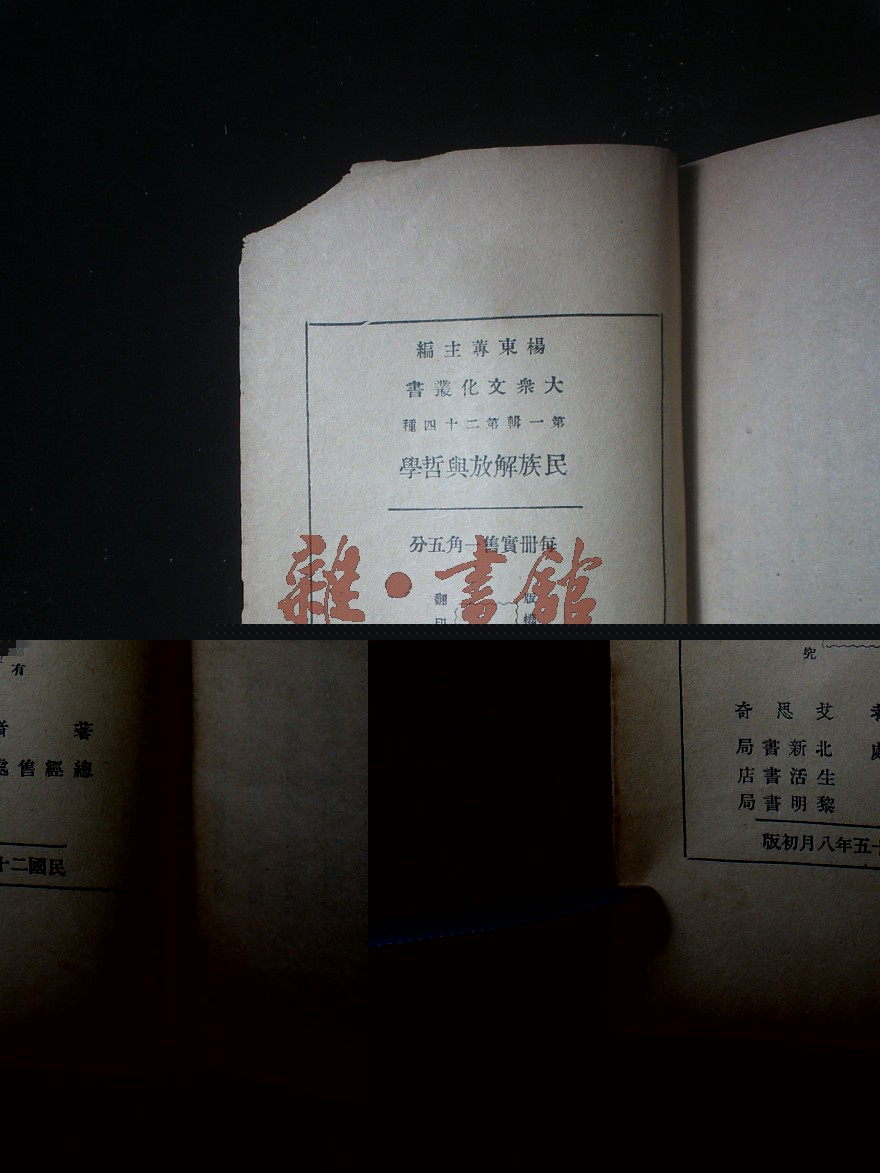 楊東蓴主編
大衆文化叢書
第一輯第二十四種
民族解放與哲學
每冊實售一角五分
版
翻印
雜·書館
有
著者
總經售處
民國二十
究
者 艾思奇
處 北新書局
生活書店
黎明書局
十五年八月初版